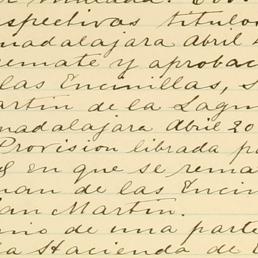 spectivos titulos
uadalajara Abril
emate y aprobac
las Encinillas, S
artin de la Lagu
uadalajara Abril 20
Provision librada p
en que se rema
uan de las Encin
an Martin.
nio de una parte
la Hacienda de